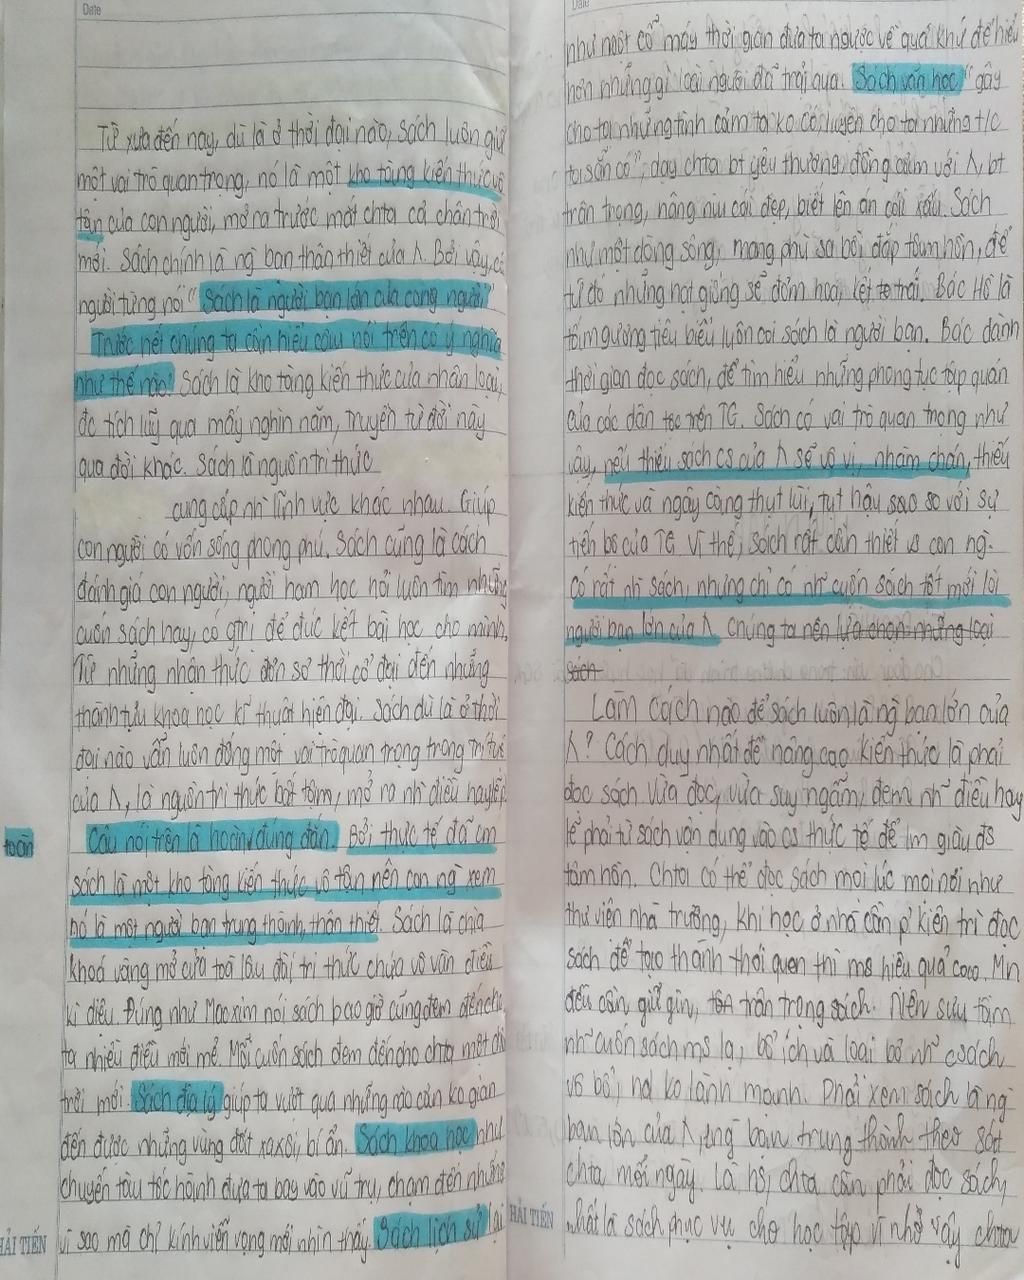 Date
Từ xưa đến nay, dù là ở thời đại nào, sách luôn giữ
một vai trò quan trọng, nó là một kho tàng kiến thức vô
tận của con người, mở ra trước mắt chta cả chân trời
mới. Sách chính là ng bạn thân thiết của Λ. Bởi vậy, có
người từng nói "Sách là người bạn lớn của cong người"
Trước hết chúng ta cần hiểu câu nói trên có ý nghĩa
như thế nào? Sách là kho tàng kiến thức của nhân loại,
đc tích lũy qua mấy nghìn năm, truyền từ đời này
qua đời khác. Sách là nguồn tri thức
cung cấp nhì lĩnh vực khác nhau. Giúp
con người có vốn sống phong phú. Sách cũng là cách
đánh giá con người, người ham học hỏi luôn tìm những
cuốn sách hay, có gtrị để đúc kết bài học cho mình.
Từ những nhận thức đơn sơ thời cổ đại đến những
thành tựu khoa học kĩ thuật hiện đại. Sách dù là ở thời
đại nào vẫn luôn đóng một vai trò quan trọng trong trí tuệ
của Λ, là nguồn tri thức bất tận, mở ra nhì điều hay lẽ
Câu nói trên là hoàn đúng đắn. Bởi thực tế đã cm
toàn
sách là một kho tàng kiến thức vô tận nên con ng xem
nó là một người bạn trung thành, thân thiết. Sách là chìa
khoá vàng mở cửa toà lâu đài tri thức chứa vô vàn điều
kì diệu. Đúng như Macxim nói sách bao giờ cũng đem đến cho
ta nhiều điều mới mẻ. Mỗi cuốn sách đem đến cho chta một chân
trời mới. Sách địa lý giúp ta vượt qua những rào cản ko gian
đến được những vùng đất xa xôi, bí ẩn. Sách khoa học như
chuyến tàu tốc hành đưa ta bay vào vũ trụ, chạm đến những
vì sao mà chỉ kính viễn vọng mới nhìn thấy. Sách lịch sử lại
HẢI TIẾN
Date
như một cỗ máy thời gian đưa ta ngược về quá khứ để hiểu
hơn những gì loài người đã trải qua. Sách văn học "gây
cho ta những tình cảm ta ko có, luyện cho ta những t/c
ta sẵn có", dạy chta bt yêu thương, đồng cảm với Λ, bt
trân trọng, nâng niu cái đẹp, biết lên án cái xấu. Sách
như một dòng sông, mang phù sa bồi đắp tâm hồn, để
từ đó những hạt giống sẽ đơm hoa, kết trái. Bác Hồ là
tấm gương tiêu biểu luôn coi sách là người bạn. Bác dành
thời gian đọc sách, để tìm hiểu những phong tục tập quán
của các dân tộc trên TG. Sách có vai trò quan trọng như
vậy, nếu thiếu sách cs của Λ sẽ vô vị, nhàm chán, thiếu
kiến thức và ngày càng thụt lùi, tụt hậu sao so với sự
tiến bộ của TG. Vì thế, sách rất cần thiết vs con ng.
Có rất nhì sách, nhưng chỉ có nhữ cuốn sách tốt mới là
người bạn lớn của Λ. Chúng ta nên lựa chọn những loại
sách
Làm cách nào để sách luôn là ng bạn lớn của
Λ? Cách duy nhất để nâng cao kiến thức là phải
đọc sách. Vừa đọc, vừa suy ngẫm, đem nhữ điều hay
lẽ phải từ sách vận dụng vào cs thực tế để lm giàu đs
tâm hồn. Chta có thể đọc sách mọi lúc mọi nơi như
thư viện nhà trường, khi học ở nhà cần p' kiên trì đọc
sách để tạo thành thói quen thì ms hiệu quả cao. Mn
đều cần giữ gìn, trân trọng sách. Nên sưu tầm
nhữ cuốn sách ms lạ, bổ ích và loại bỏ nhữ csách
vô bổ, nd ko lành mạnh. Phải xem sách là ng
bạn lớn của Λ, ng bạn trung thành theo sát
chta mỗi ngày. Là hs, chta cần phải đọc sách,
nhất là sách phục vụ cho học tập vì nhờ vậy chta
HẢI TIẾN